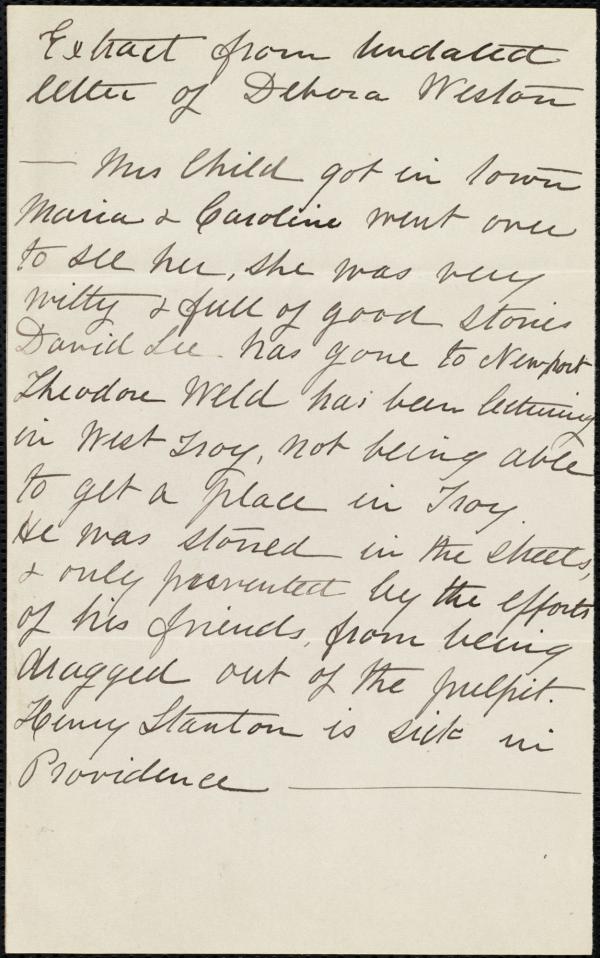 Extract from undated
letter of Debora Weston
— Mrs Child got in town
Maria & Caroline went over
to see her, she was very
witty & full of good stories
David Lee has gone to Newport
Theodore Weld has been lecturing
in West Troy, not being able
to get a place in Troy.
He was stoned in the streets,
& only prevented by the efforts
of his friends, from being
dragged out of the pulpit.
Henry Stanton is sick in
Providence —